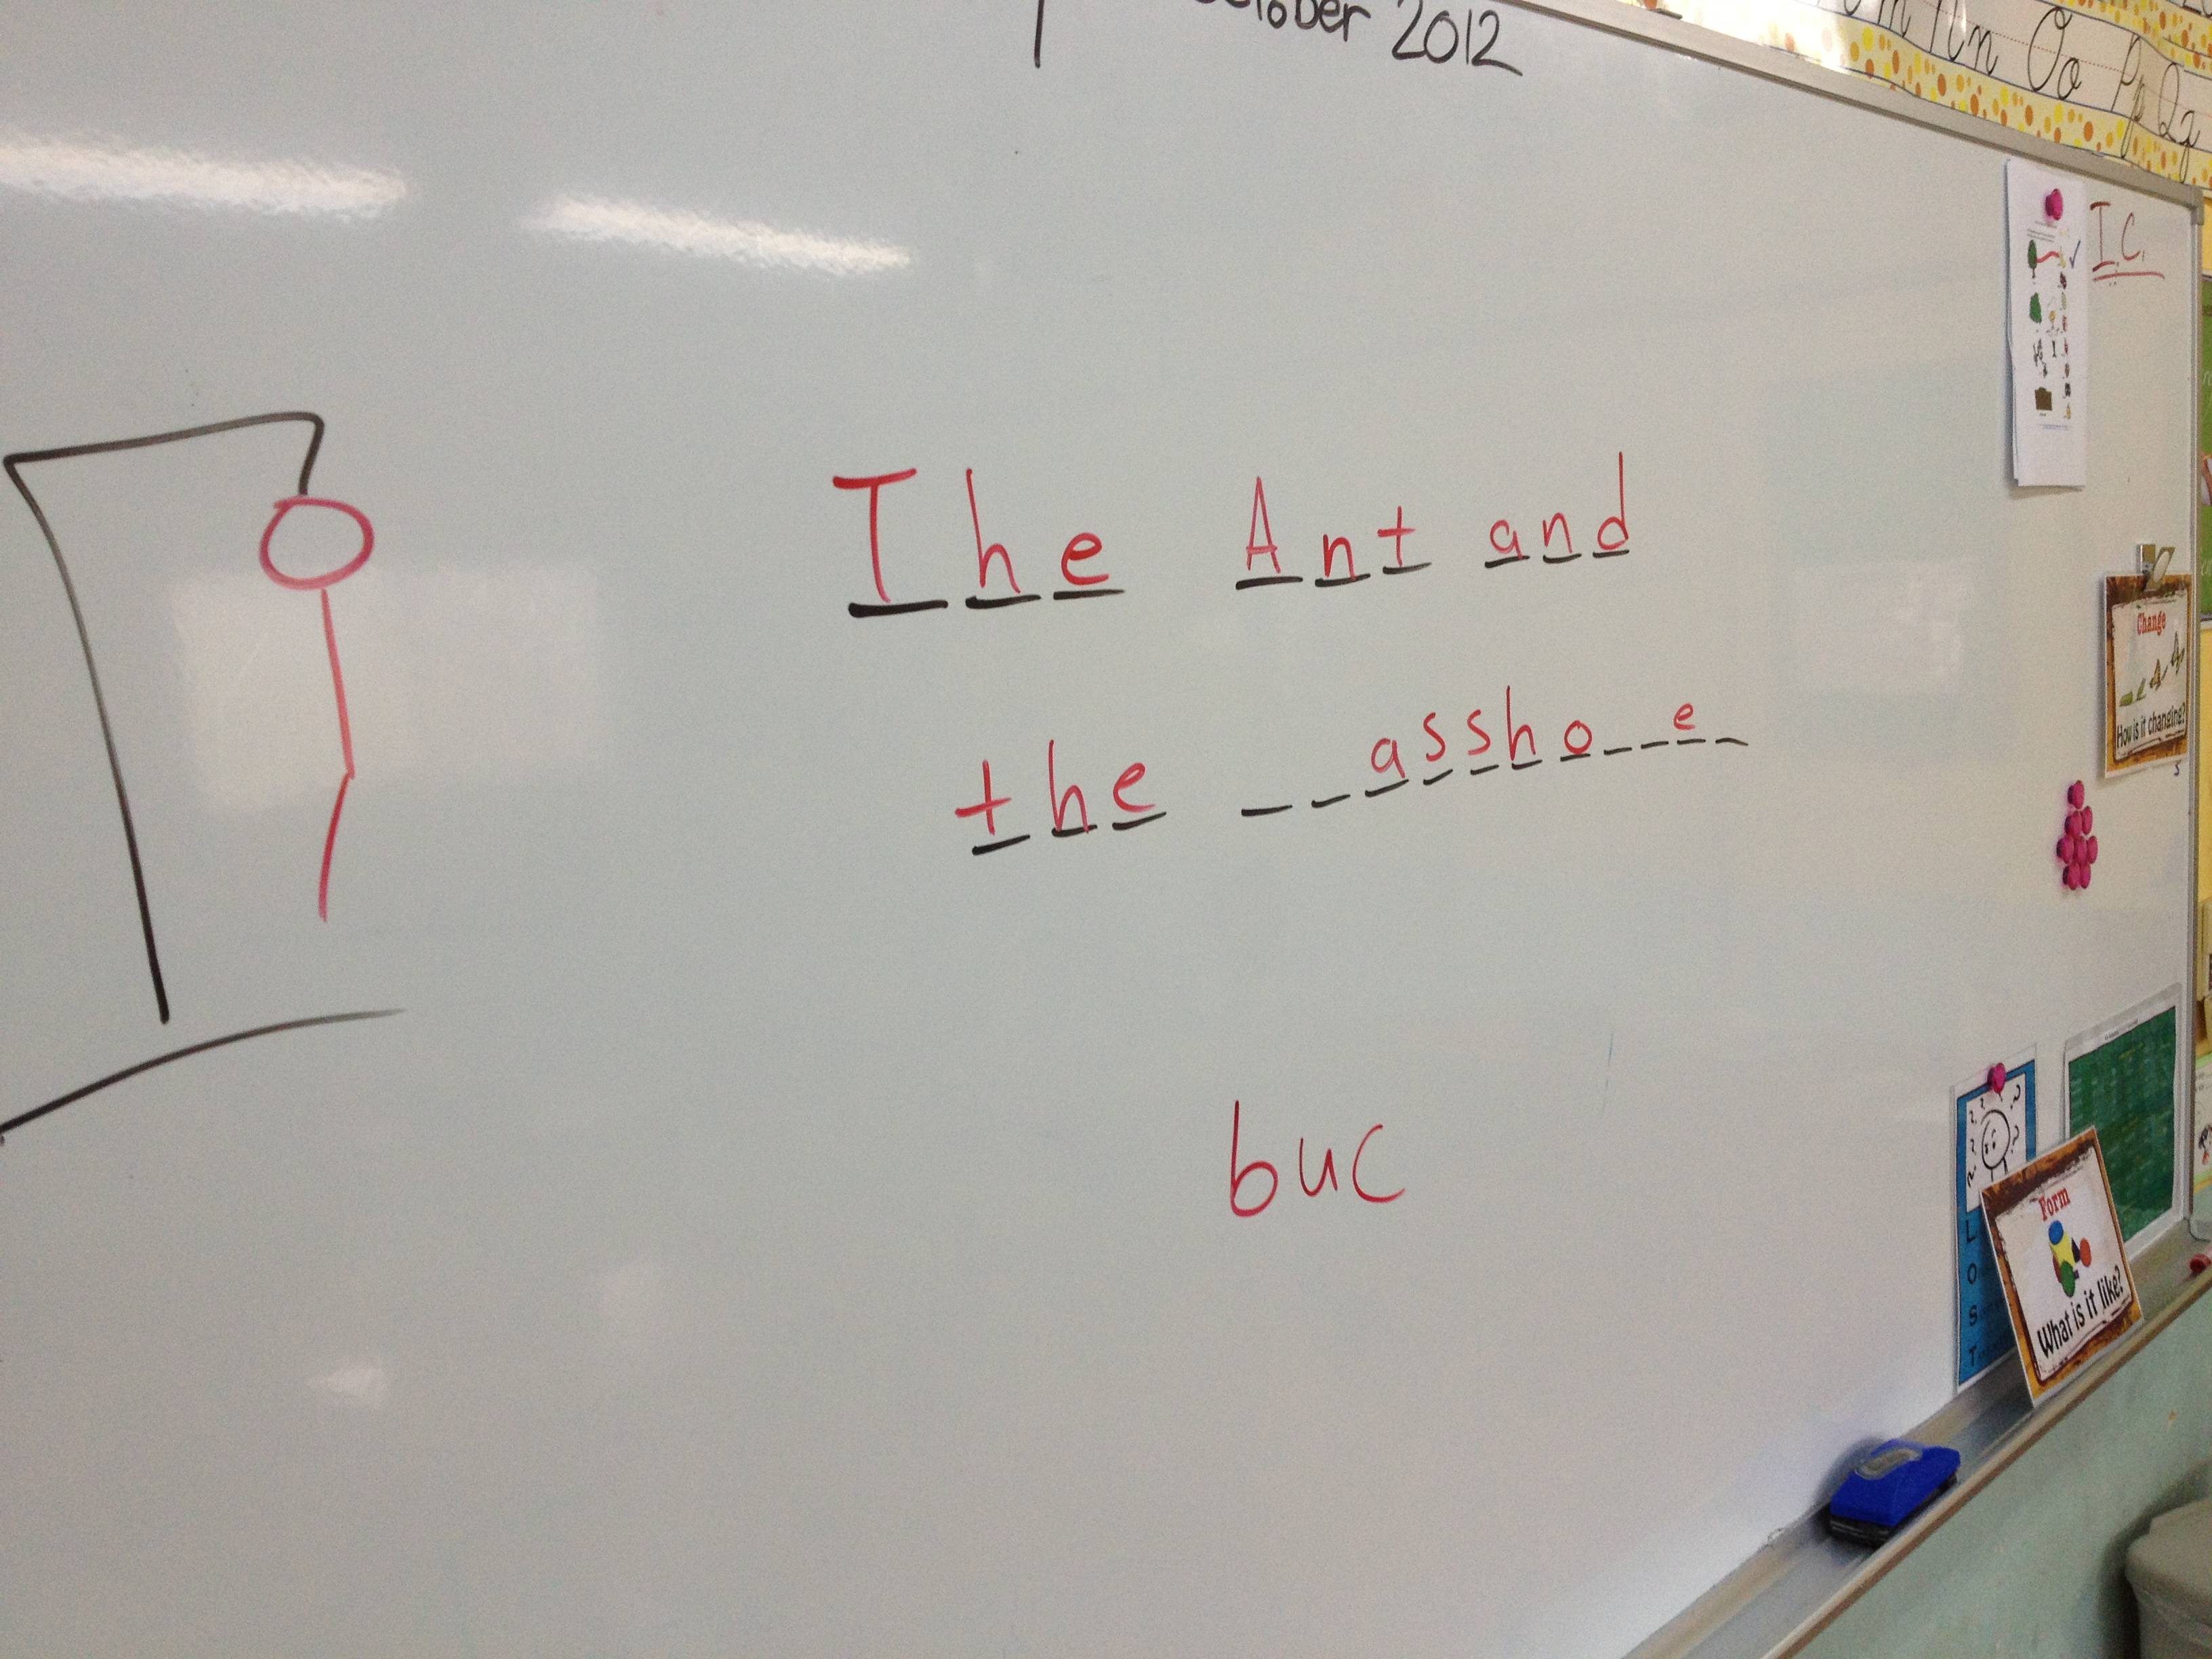 October 2012
Oo Pp Qq
I.C.
The Ant and
the _ _ assho _ _ e _
Change
How is it changing?
buc
Form
What is it like?
L
O
S
T